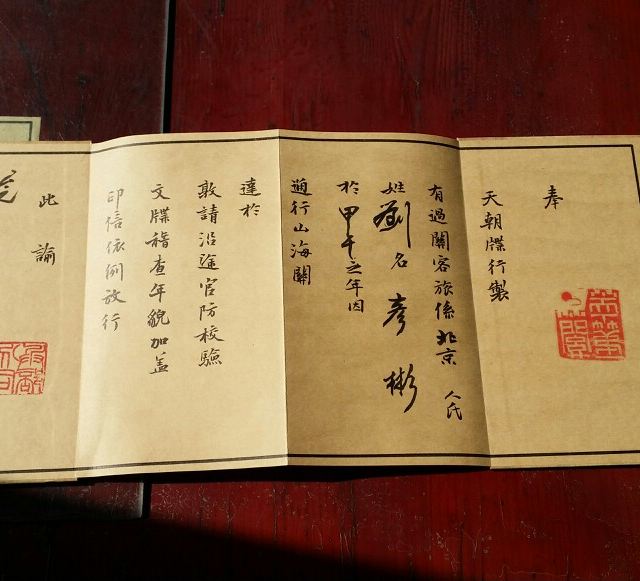 奉
天朝牒行製
有過關客旅係北京人氏
姓劉名彥彬
於甲午之年因
通行山海關
達於
敦請沿途官防校驗
文牒稽查年貌加盖
印信依例放行
此諭